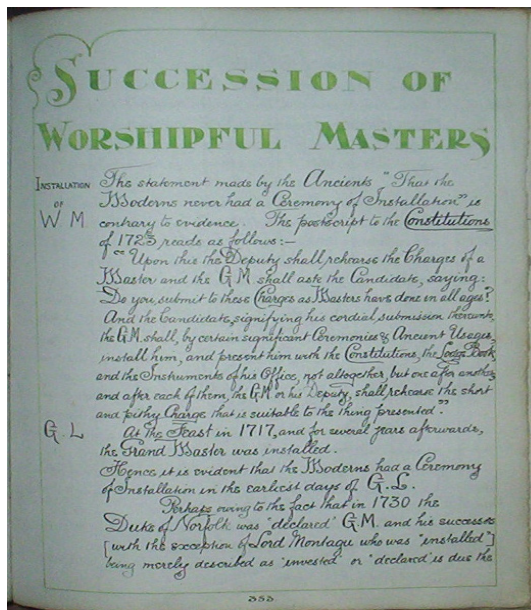 SUCCESSION OF
WORSHIPFUL MASTERS
INSTALLATION
OF
W M
The statement made by the Ancients, "That the
Moderns never had a Ceremony of Installation" is
contrary to evidence. The postscript to the Constitutions
of 1723 reads as follows:—
"Upon this the Deputy shall rehearse the Charges of a
Master and the G M shall ask the Candidate, saying:
Do you submit to these Charges as Masters have done in all ages?
And the Candidate, signifying his cordial submission thereunto,
the G.M. shall, by certain significant Ceremonies & Ancient Usages,
install him, and present him with the Constitutions, the Lodge Book
and the Instruments of his Office, not altogether, but one after another,
and after each of them, the G.M. or his Deputy, shall rehearse the short
and pithy Charge that is suitable to the thing presented."
G. L
At the Feast in 1717, and for several years afterwards,
the Grand Master was installed.
Hence it is evident that the Moderns had a Ceremony
of Installation in the earliest days of G. L.
Perhaps owing to the fact that in 1730 the
Duke of Norfolk was 'declared' G.M. and his successors
[with the exception of Lord Montagu who was "installed"]
being merely described as 'invested' or 'declared' is due the
353